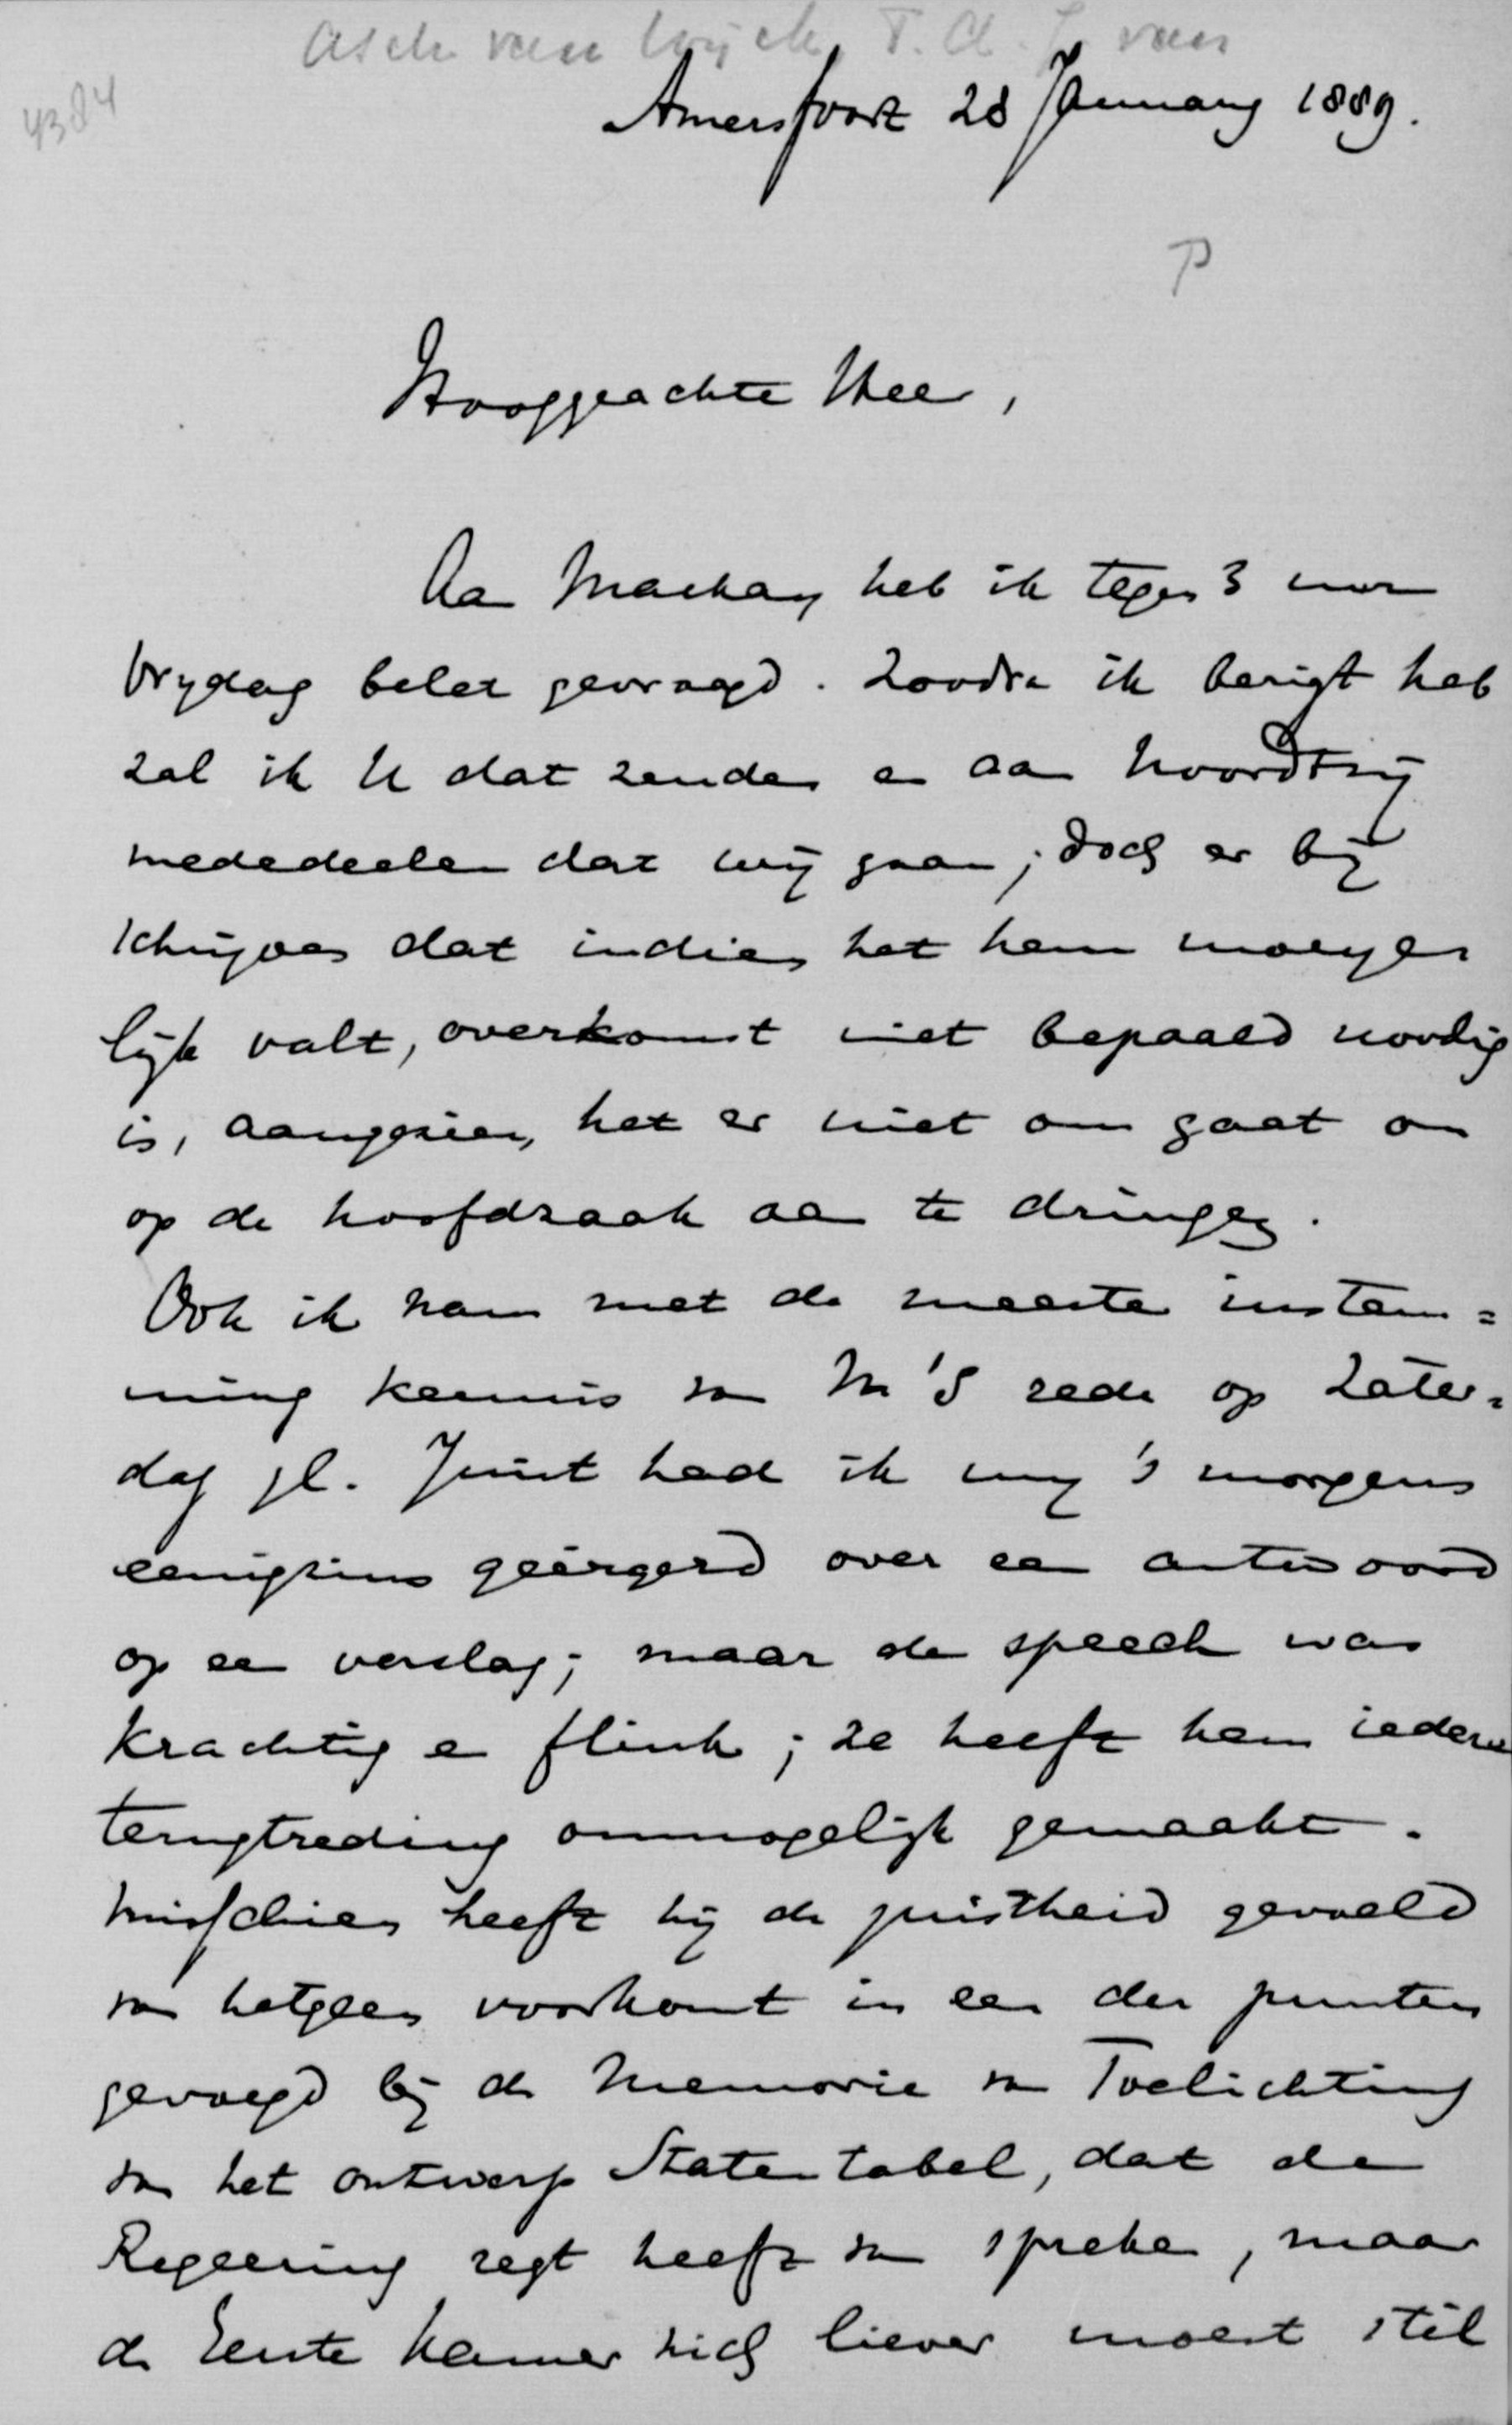 Asch van Wijck, T. A. J. van
4384
Amersfoort 28 January 1889.
P
Hooggeachte Heer,
Aan Mackay heb ik tegen 3 uur
Vrydag belet gevraagd. Zoodra ik berigt heb
zal ik U dat zenden en aan Noordtzij
mededeelen dat wij gaan; doch er bij
schrijven dat indien het hem moeyer
lijk valt, overkomst niet bepaald noodig
is, aangezien het er niet om gaat om
op de hoofdzaak aan te dringen.
Ook ik nam met de meeste instem=
ming kennis van M's rede op Zater=
dag jl. Juist had ik my 's morgens
eenigzins geërgerd over een antwoord
op een verslag; maar de speech was
krachtig en flink; ze heeft hem iedere
terugtreding onmogelijk gemaakt.
Misschien heeft hij de juistheid gevoeld
van hetgeen voorkomt in een der punten
gevoegd bij de Memorie van Toelichting
van het ontwerp Statentabel, dat de
Regeering regt heeft van spreken, maar
de Eerste Kamer zich liever moest stil